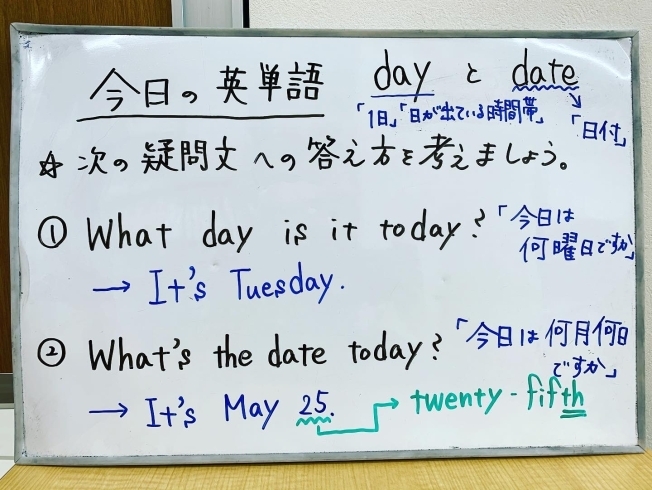 今日の英単語 day と date
「1日」「日が出ている時間帯」
「日付」
☆ 次の疑問文への答え方を考えましょう。
① What day is it today? 「今日は
何曜日ですか」
→ It's Tuesday.
② What's the date today? 「今日は何月何日
ですか」
→ It's May 25. → twenty-fifth